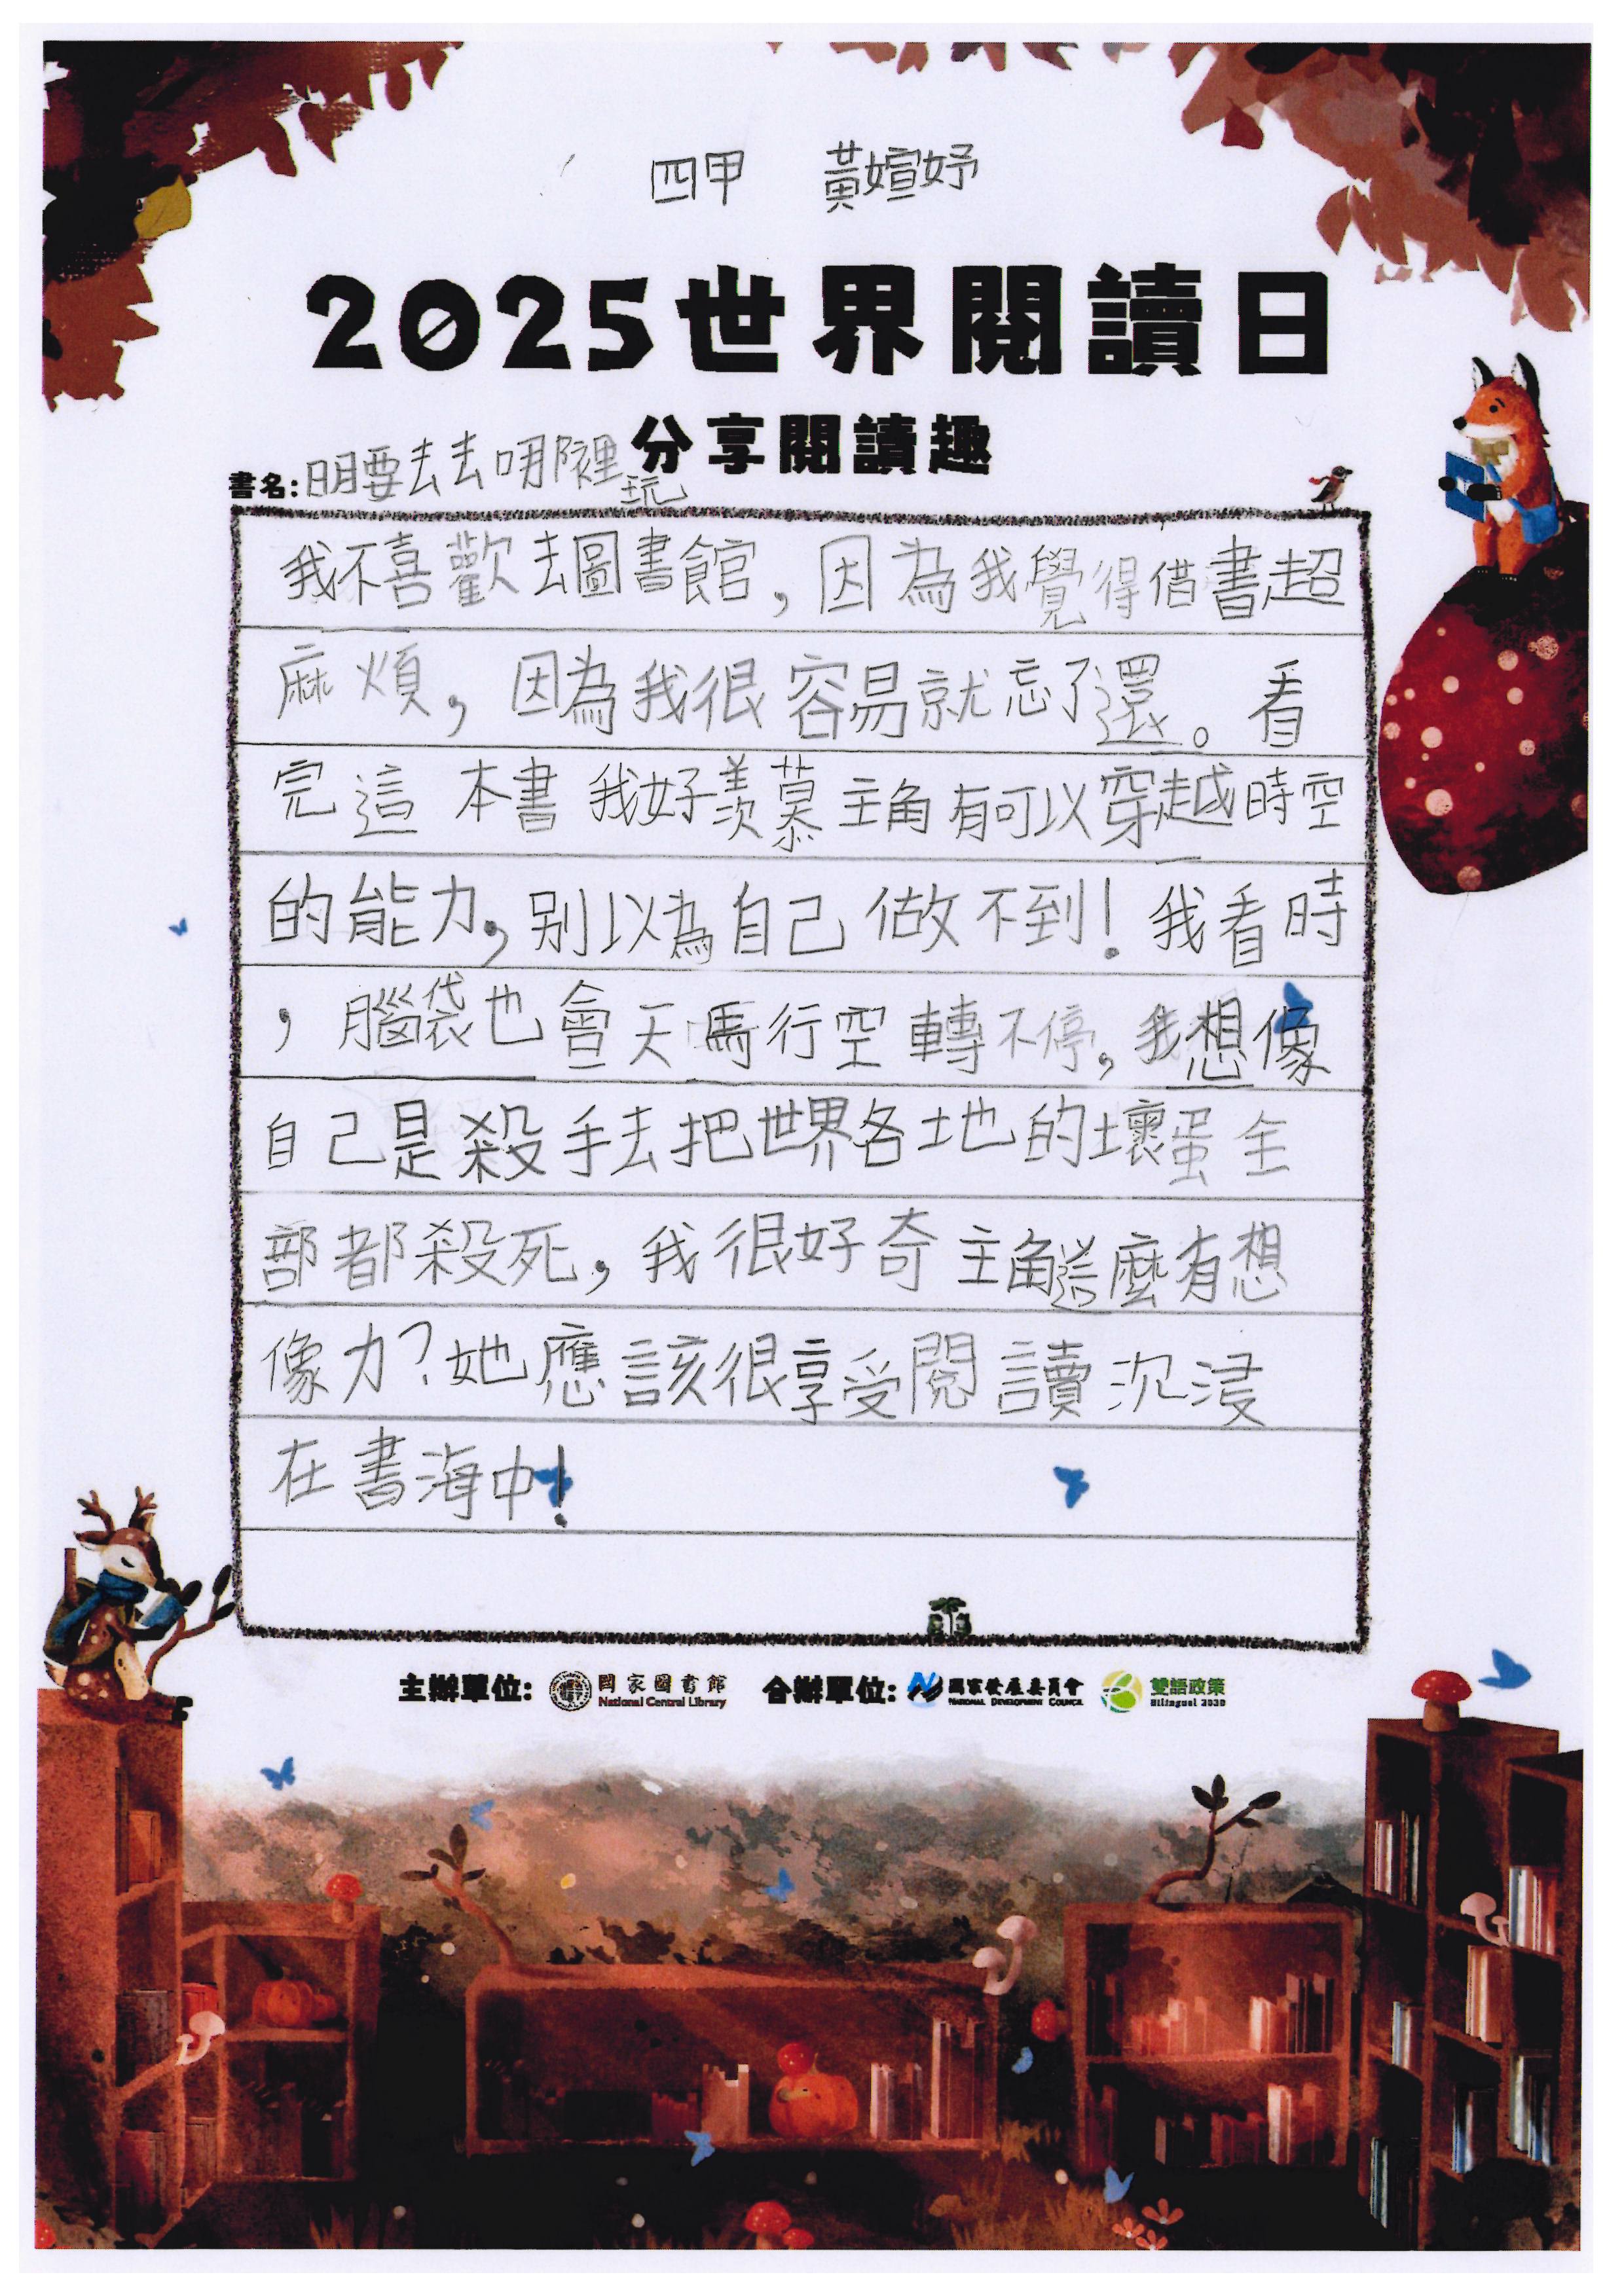 四甲 黃媗妤
2025世界閱讀日
分享閱讀趣
書名:明要去去哪裡玩
我不喜歡去圖書館，因為我覺得借書超
麻煩，因為我很容易就忘了還。看
完這本書我好羨慕主角有可以穿越時空
的能力，別以為自己做不到！我看時
，腦袋也會天馬行空轉不停，我想像
自己是殺手去把世界各地的壞蛋全
部都殺死，我很好奇主角這麼有想
像力？她應該很享受閱讀沉浸
在書海中！
主辦單位: 國家圖書館 National Central Library 合辦單位: 國家發展委員會 NATIONAL DEVELOPMENT COUNCIL 雙語政策 Bilingual 2030